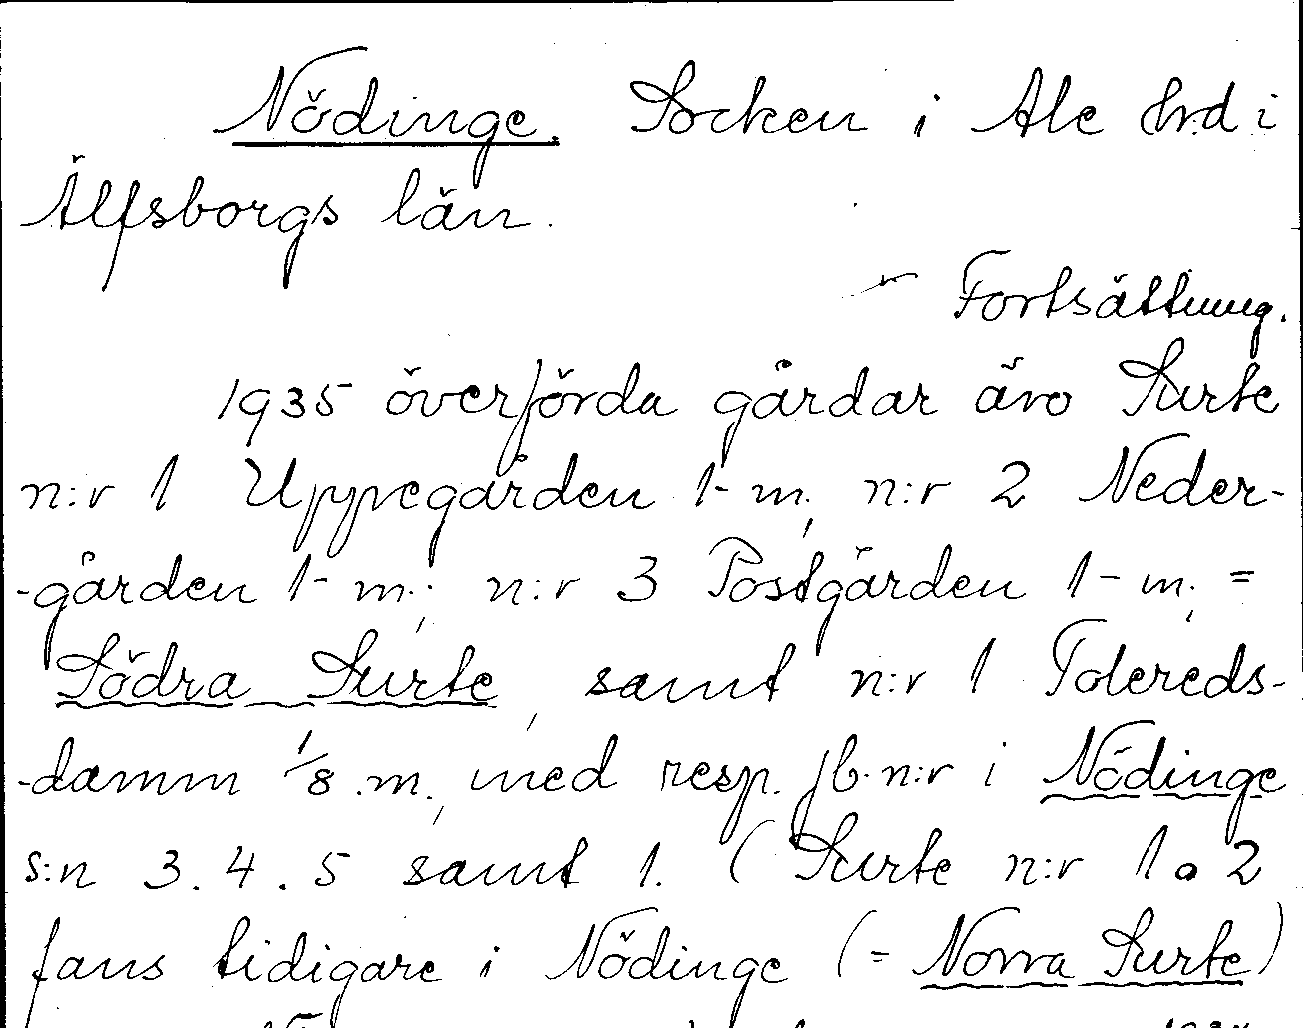 Nödinge. Socken i Ale hrd i
Älfsborgs län.
Fortsättning.
1935 överförda gårdar äro Surte
n:r 1 Uppegården 1 - m., n:r 2 Neder-
-gården 1 - m.; n:r 3 Postgården 1 - m.; =
Södra Surte, samt n:r 1 Tolereds-
-damm 1/8 m., med resp. jb. n:r i Nödinge
s:n 3. 4. 5 samt 1. (Surte n:r 1 o 2
fans tidigare i Nödinge (= Norra Surte)